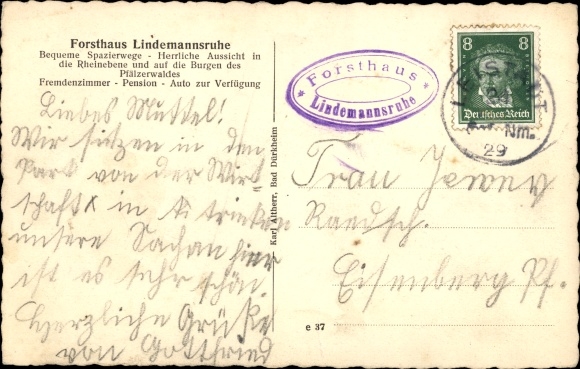 Forsthaus Lindemannsruhe
Bequeme Spazierwege - Herrliche Aussicht in
die Rheinebene und auf die Burgen des
Pfälzerwaldes
Fremdenzimmer - Pension - Auto zur Verfügung
Liebes Muttel!
Wir sitzen in den
Part von der Wirt-
schaft x in trinken
unsere Sachan hier
ist es sehr schön.
Herzliche Grüße
von Gottfried
Karl Altherr, Bad Dürkheim
* Forsthaus *
Lindemannsruhe
8 8
Deutsches Reich
Nm.
29
Frau
Eisenberg Pf.
e 37